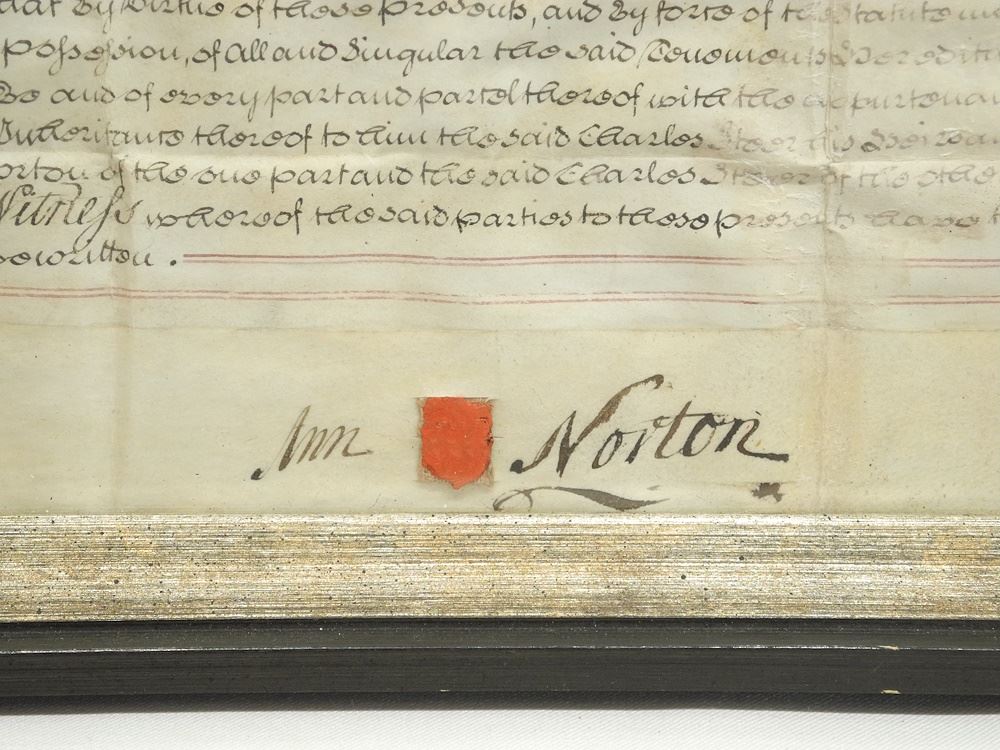 by Virtue of these Presents, and by force of the Statute
Possession, of all and Singular the said Tenements
be and of every part and parcel thereof with the appurtenan
Inheritance thereof to him the said Charles Steer his Heirs
orton of the one part and the said Charles Steer of the othe
Witness whereof the said parties to these presents have
bewritten .
Ann Norton